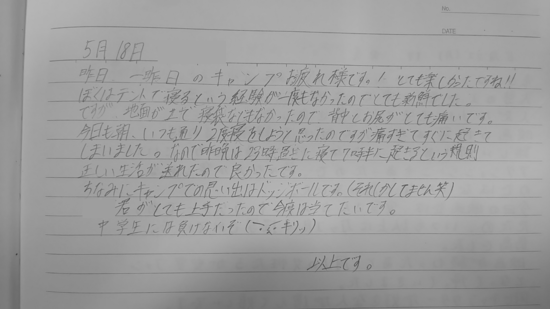 No.
DATE
5月18日
昨日、一昨日のキャンプお疲れ様です。! とても楽しかったですね!!
ぼくはテントで寝るという経験が一度もなかったのでとても新鮮でした。
ですが、地面がまで寝袋などもなかったので背中とお尻がとても痛いです。
今日も朝、いつも通り2度寝をしようと思ったのですが痛すぎてすぐに起きて
しまいました。なので昨晩は23時ごろに寝て7時半に起きるという規則
正しい生活が送れたので良かったです。
ちなみにキャンプでの思い出はドッジボールです。(それしかしてません笑)
君がとても上手だったので今度は当てたいです。
中学生には負けないぞ(キリッ)
以上です。